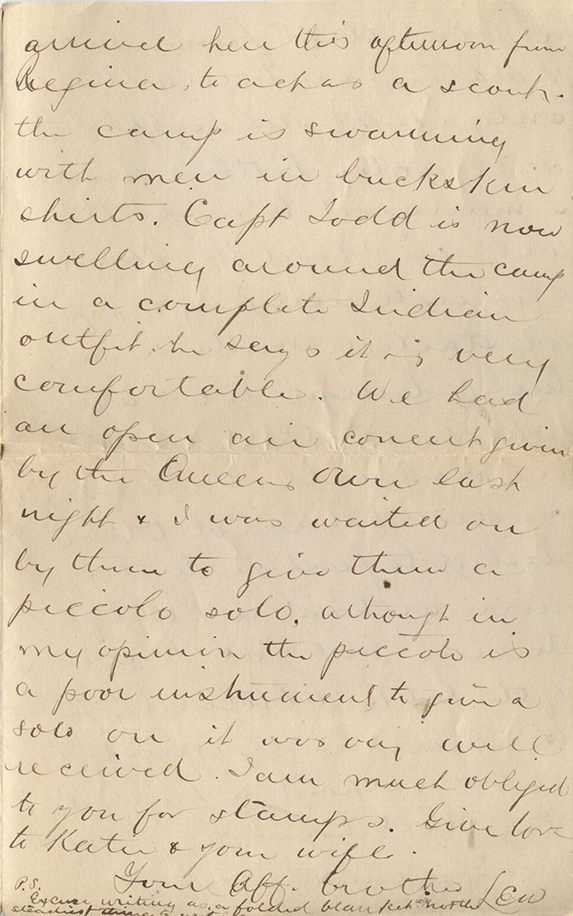 arrived here this afternoon from
Regina, to act as a scout.
the camp is swarming
with men in buckskin
shirts. Capt Todd is now
swelling around the camp
in a complete Indian
outfit. he says it is very
comfortable. We had
an open air concert given
by the Queens Own last
night & I was waited on
by them to give them a
piccolo solo. although in
my opinion the piccolo is
a poor instrument to give a
solo on it was very well
received. I am much obliged
to you for stamps. Give love
to Kate & your wife.
Your Aff. brother Lew
P.S.
Excuse writing as a folded blanket
steadiest